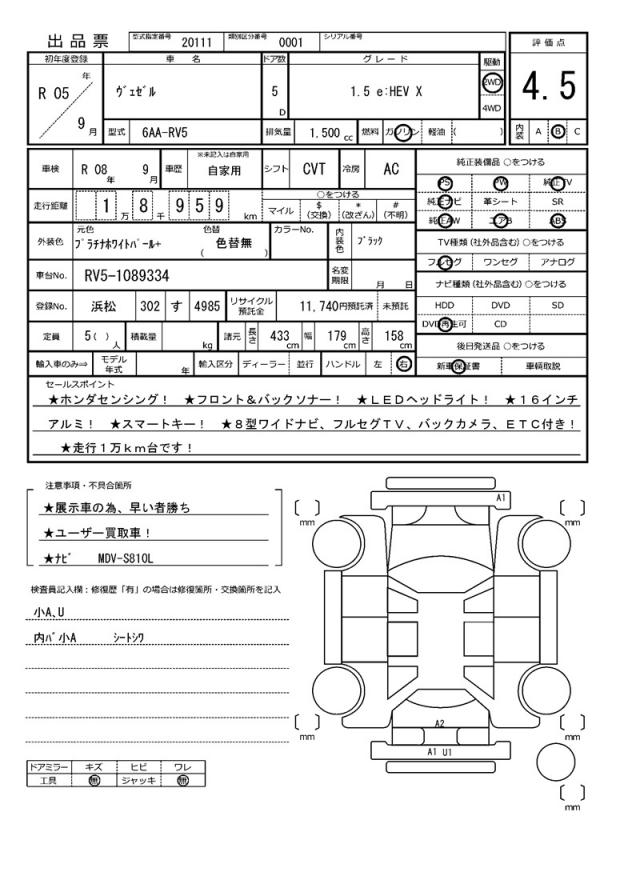 出品票 型式指定番号 20111 類別区分番号 0001 シリアル番号
評価点
4.5
初年度登録 車名 ドア数 グレード 駆動
R 05 年 9 月 ヴェゼル 5 D 1.5 e:HEV X 2WD 4WD
型式 6AA-RV5 排気量 1.500 cc 燃料 ガソリン 軽油 ( ) 内装 A B C
車検 R 08 年 9 月 車歴 ※未記入は自家用 自家用 シフト CVT 冷房 AC
純正装備品 ○をつける
PS PW 純正TV
純正ナビ 革シート SR
純正AW エアB ABS
走行距離 1 万 8 千 9 5 9 km
○をつける
マイル $ (交換) * (改ざん) # (不明)
外装色 元色 プラチナホワイトパール+ 色替 ( 色替無 ) カラーNo. 内装色 ブラック
TV種類 (社外品含む) ○をつける
フルセグ ワンセグ アナログ
車台No. RV5-1089334 名変期限 月 日
ナビ種類 (社外品含む) ○をつける
HDD DVD SD
DVD再生可 CD
登録No. 浜松 302 す 4985 リサイクル預託金 11,740円預託済 未預託
定員 5( ) 人 積載量 kg 諸元 長さ 433 cm 幅 179 cm 高さ 158 cm
後日発送品 ○をつける
新車保証書 車輌取説
輸入車のみ⇒ モデル年式 年 輸入区分 ディーラー 並行 ハンドル 左 右
セールスポイント
★ホンダセンシング! ★フロント&バックソナー! ★LEDヘッドライト! ★16インチ
アルミ! ★スマートキー! ★8型ワイドナビ、フルセグTV、バックカメラ、ETC付き!
★走行1万km台です!
注意事項・不具合箇所
★展示車の為、早い者勝ち
★ユーザー買取車!
★ナビ MDV-S810L
検査員記入欄:修復歴「有」の場合は修復箇所・交換箇所を記入
小A、U
内バ小A シートシワ
ドアミラー キズ ヒビ ワレ
工具 無 ジャッキ 無
A1
[ ] mm
[ ] mm
A2
A1 U1
[ ] mm
[ ] mm
[ ] mm